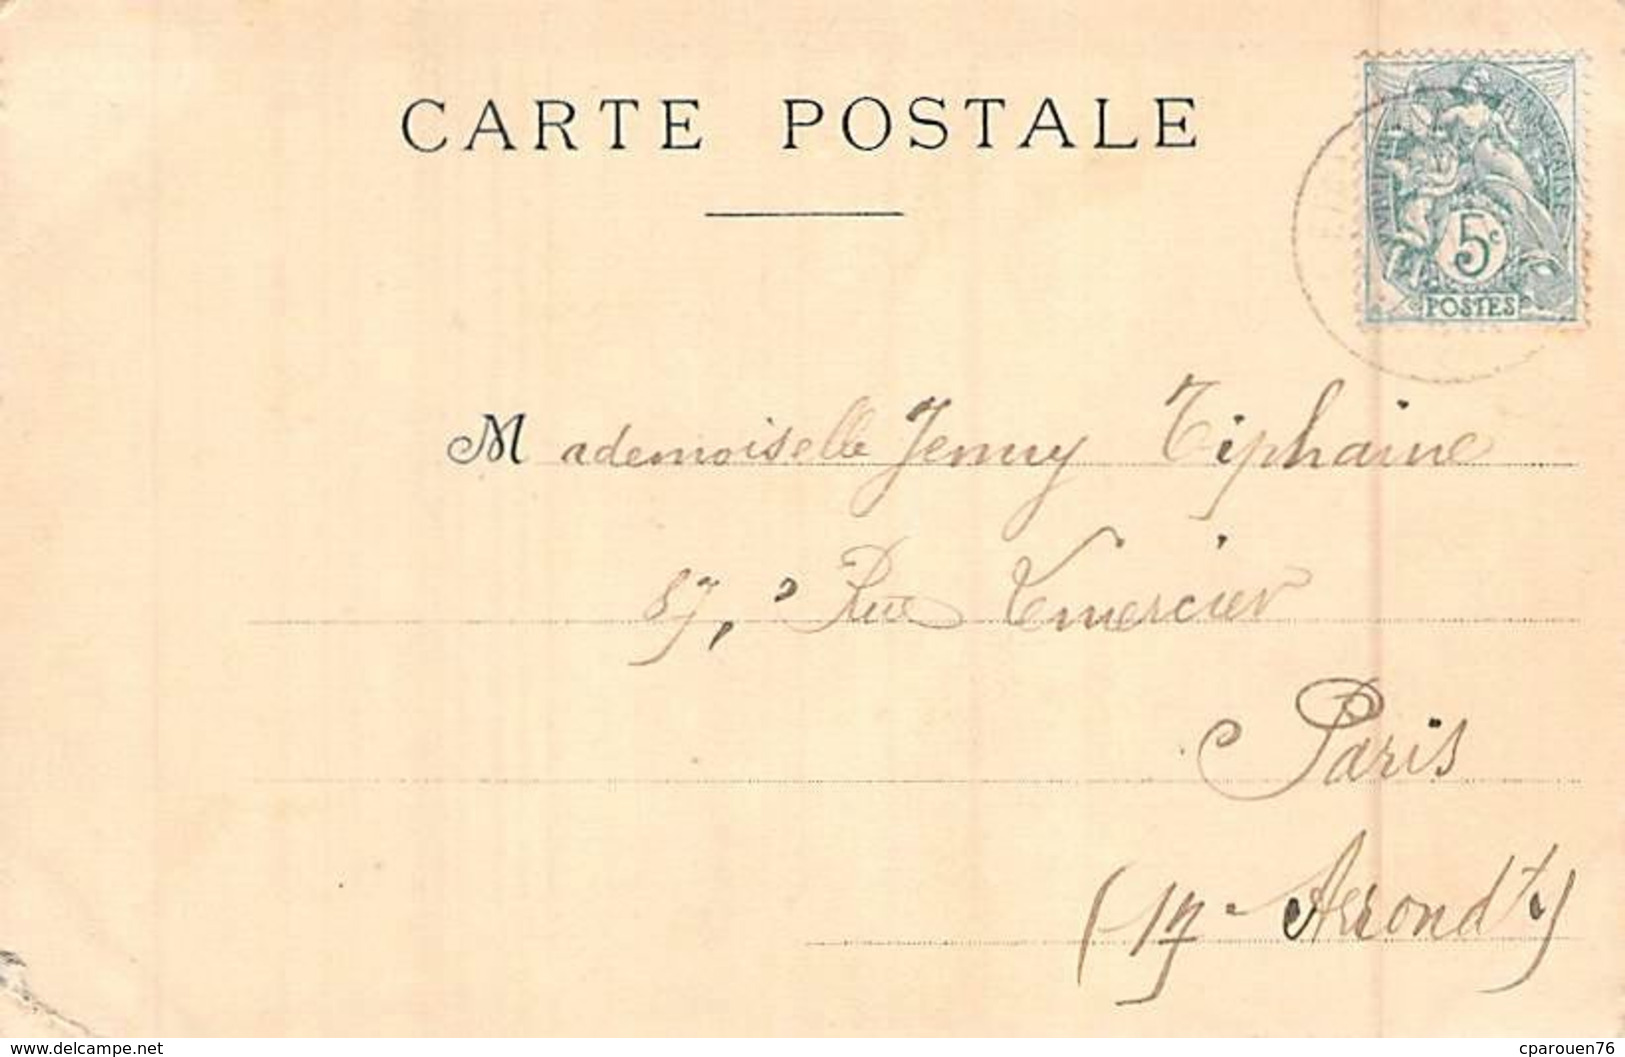 CARTE POSTALE
RÉPUBLIQUE FRANÇAISE
5c
POSTES
Mademoiselle Jenny Tiphaine
87, Rue Lemercier
Paris
(17e Arrondt)
www.delcampe.net
cparouen76